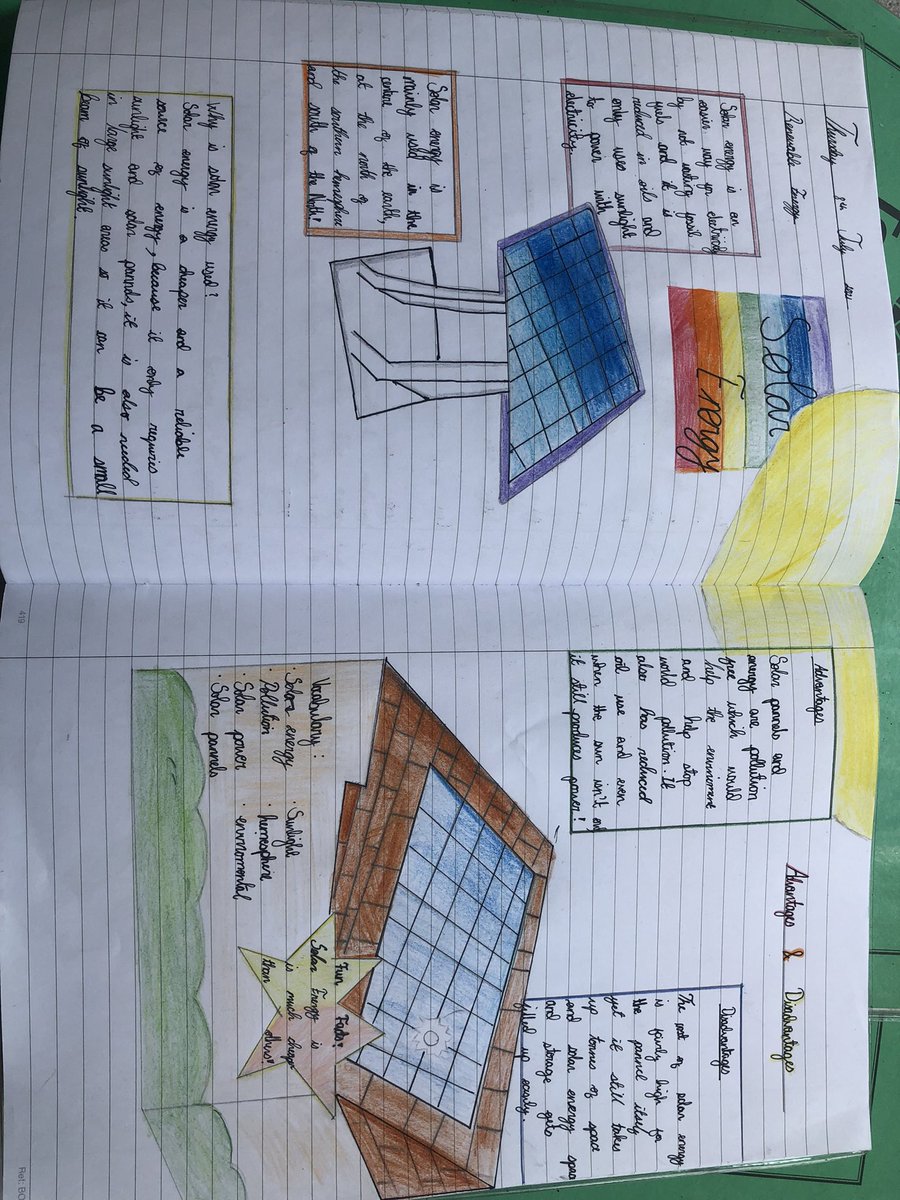 Thursday 8th July 2021
Renewable Energy
Solar
Energy
Solar energy is an
easier way for electricity
by not wasting fossil
fuels and it is
reduced in oils and
only uses sunlight
to power with
electricity.
Solar energy is
mainly used in the
centre of the earth,
at the north of
the southern hemisphere
and south of the North!
Why is solar energy used?
Solar energy is a cheaper and a reliable
source of energy, because it only requires
sunlight and solar pannels, it is also needed
in large sunlight areas so it can be a small
beam of sunlight
Advantages & Disadvantages
Advantages
Solar pannels and
energy are pollution
free which would
help the enviroment
and help stop
world pollution. It
also has reduced
oil use and even
when the sun isn't on
it still produces power!
Disadvantages
The cost of solar energy
is fairly high for
the pannel itself
yet it still takes
up tonnes of space
and solar energy space
and storage gets
filled up easily.
Vocabulary:
· Solar energy
· Pollution
· Solar power
· Solar pannels
· Sunlight
· hemesphere
· enviromental
Fun Facts!
Solar Energy is
is much cheaper
than others!
419